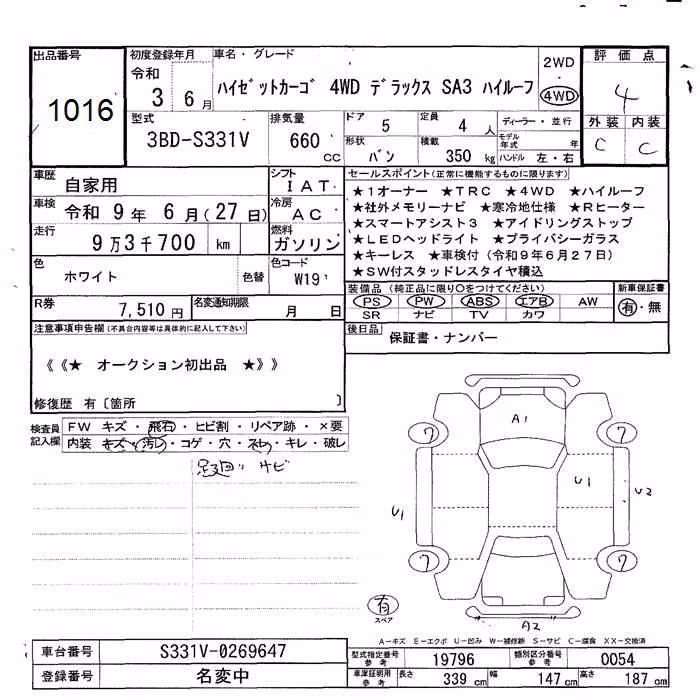 出品番号
1016
初度登録年月
令和
3 6 月
車名・グレード
ハイゼットカーゴ 4WD デラックス SA3 ハイルーフ
2WD
4WD
評価点
4
外装 内装
C C
型式
3BD-S331V
排気量
660
CC
ドア
5
定員
4 人
形状
バン
積載
350 kg
ディーラー・並行
モデル年式 年
ハンドル 左・右
車歴
自家用
シフト
IAT
車検
令和 9 年 6 月(27 日)
冷房
AC
走行
9 万 3 千 700 km
燃料
ガソリン
色
ホワイト
色替
色コード
W19
R券
7,510 円
名変通知期限
月 日
セールスポイント(正常に機能するものに限ります)
★1オーナー ★TRC ★4WD ★ハイルーフ
★社外メモリーナビ ★寒冷地仕様 ★Rヒーター
★スマートアシスト3 ★アイドリングストップ
★LEDヘッドライト ★プライバシーガラス
★キーレス ★車検付(令和9年6月27日)
★SW付スタッドレスタイヤ積込
装備品(純正品に限り○をつけてください)
PS PW ABS エアB AW
SR ナビ TV カワ
新車保証書
有・無
後日品
保証書・ナンバー
注意事項申告欄(不具合内容等は具体的に記入して下さい)
《《★ オークション初出品 ★》》
修復歴 有〔箇所 〕
検査員記入欄
FW キズ・飛石・ヒビ割・リペア跡・×要
内装 キズ・汚レ・コゲ・穴・ネセ・キレ・破レ
足廻 サビ
A1
7
7
U1
U1
U2
7
7
有
スペア
A2
A-キズ E-エクボ U-凹み W-補修跡 S-サビ C-腐食 XX-交換済
車台番号
S331V-0269647
登録番号
名変中
型式指定番号
参考
19796
類別区分番号
参考
0054
車庫証明用
参考
長さ
339 cm
幅
147 cm
高さ
187 cm